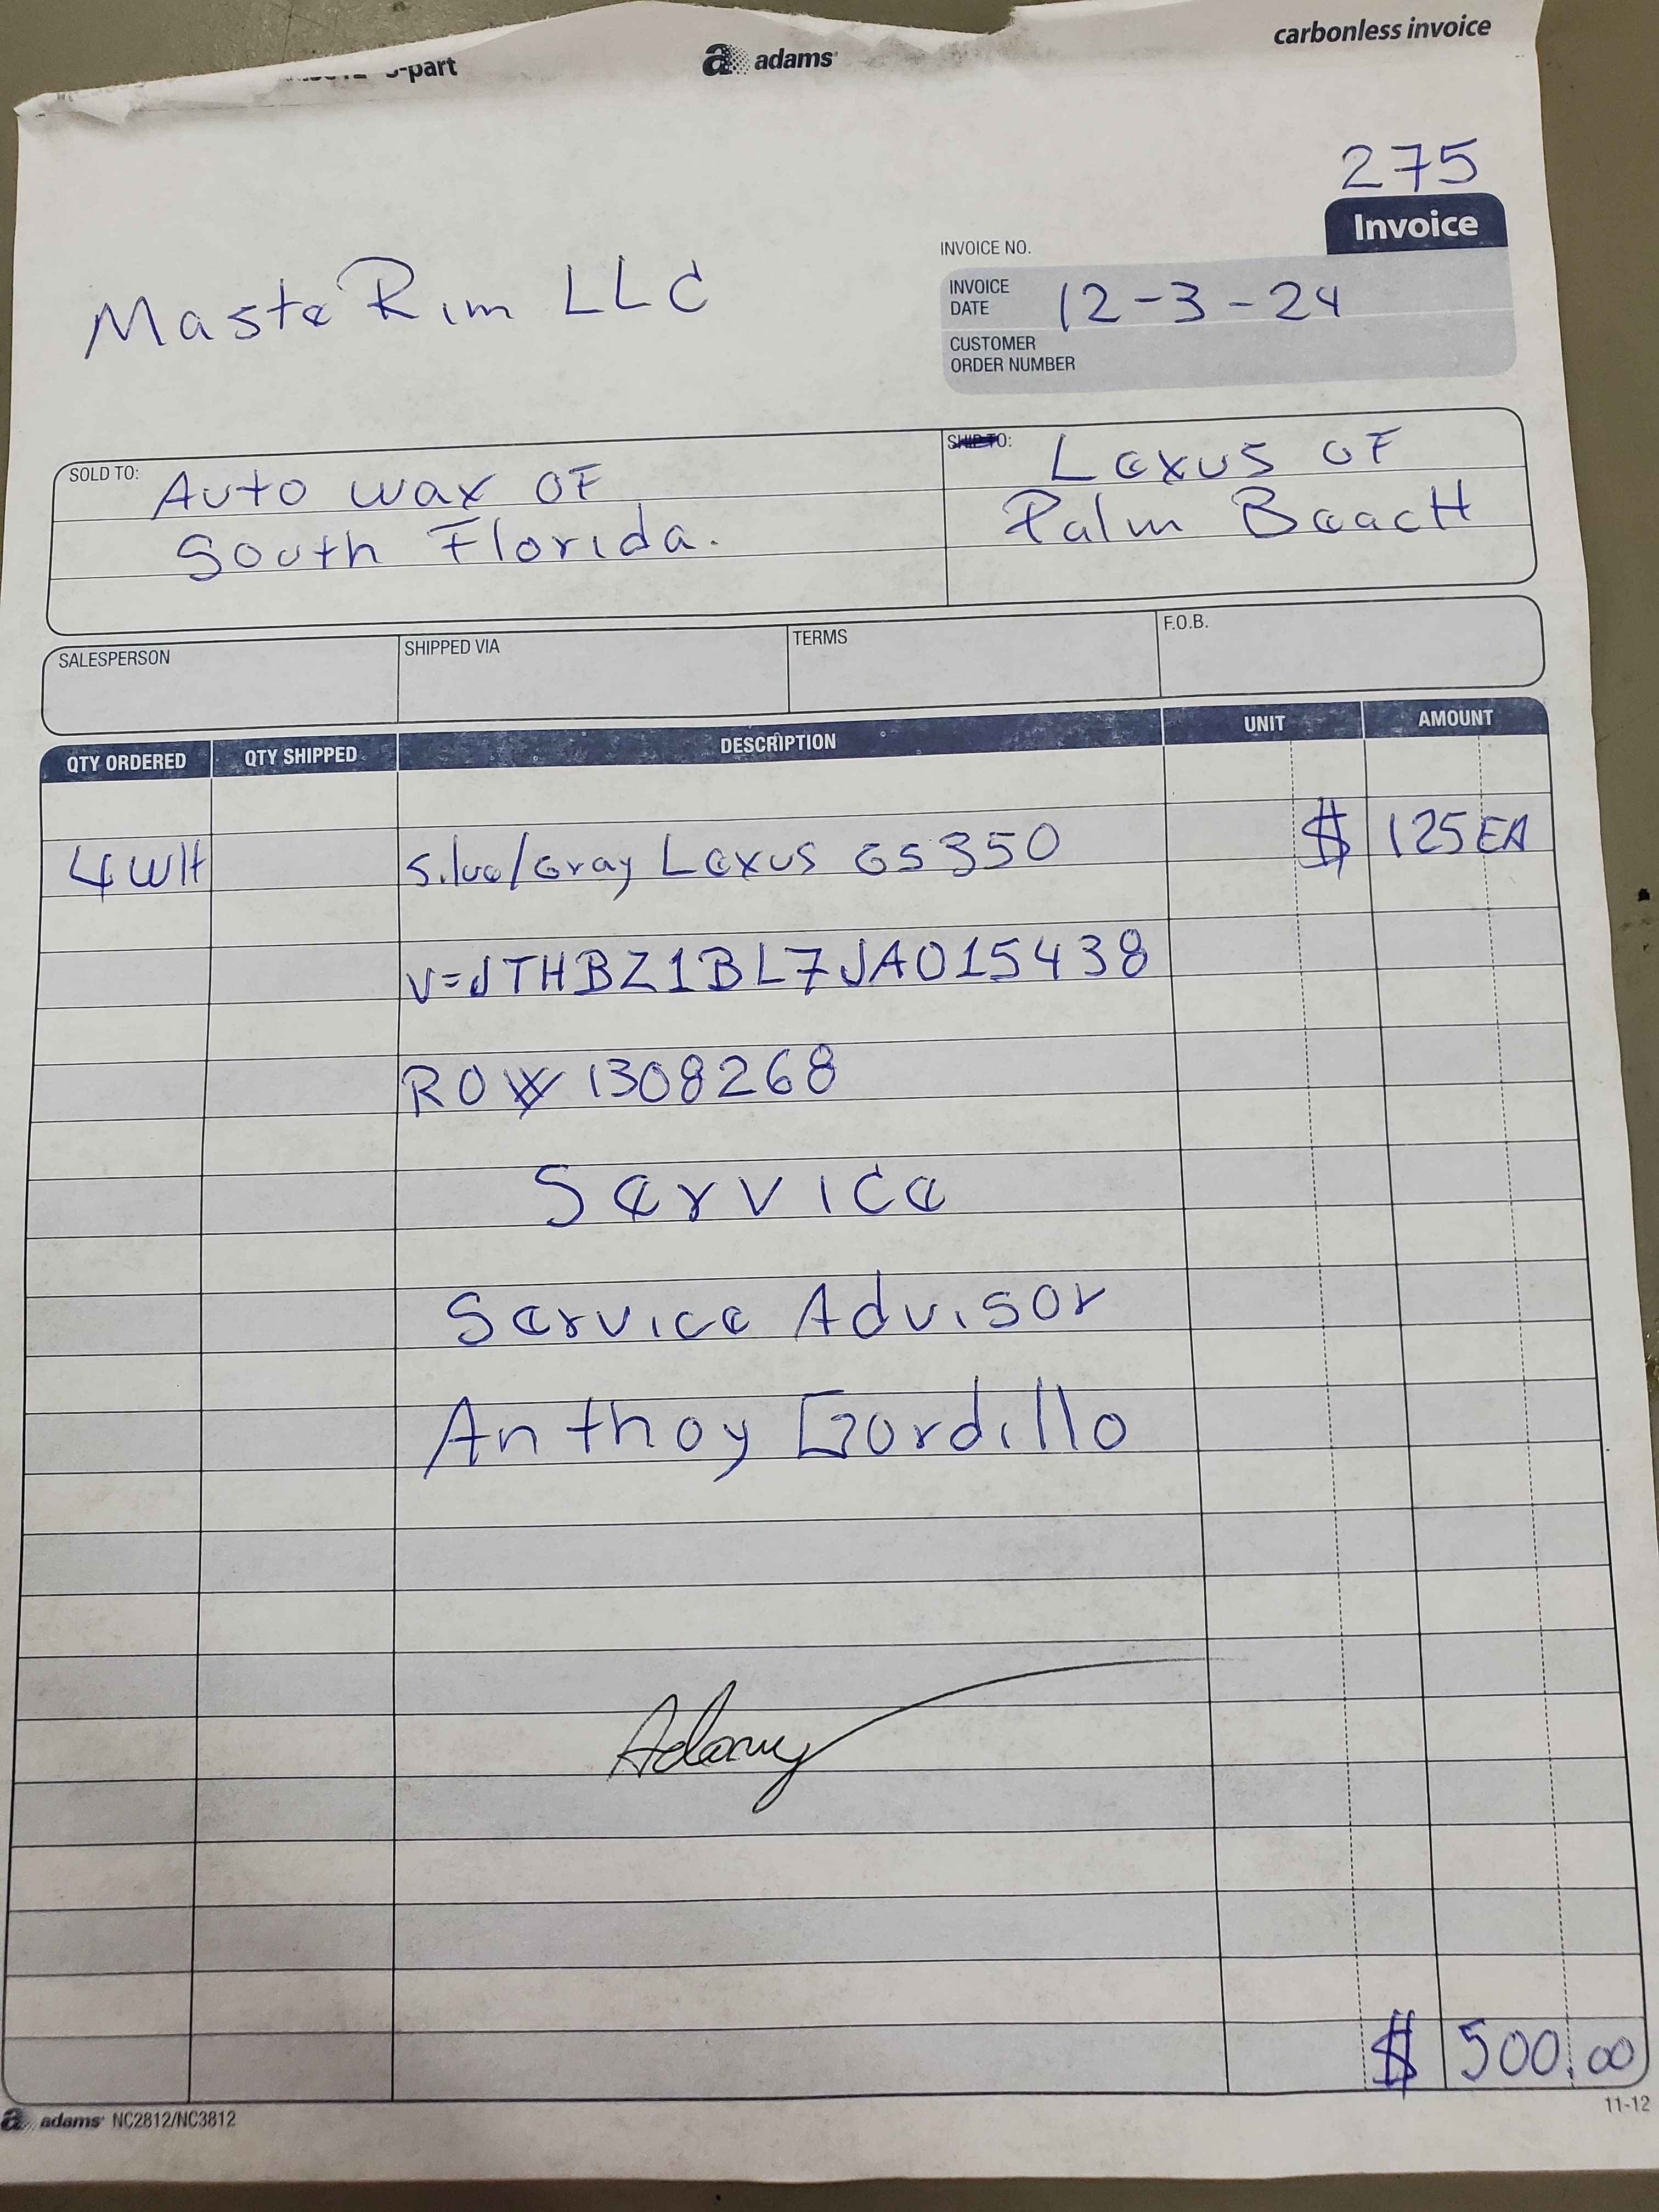 3-part
adams
carbonless invoice
275
Invoice
INVOICE NO.
Maste Rim LLC
INVOICE DATE 12-3-24
CUSTOMER ORDER NUMBER
SOLD TO: Auto wax OF
South Florida.
SHIP TO: Lexus OF
Palm BeacH
SALESPERSON
SHIPPED VIA
TERMS
F.O.B.
QTY ORDERED QTY SHIPPED DESCRIPTION UNIT AMOUNT
4 WH Silve/Gray Lexus GS350 $ 125 EA
V=JTHBZ1BL7JA015438
RO# 1308268
Service
Service Advisor
Anthoy Gordillo
$ 500.00
adams NC2812/NC3812
11-12